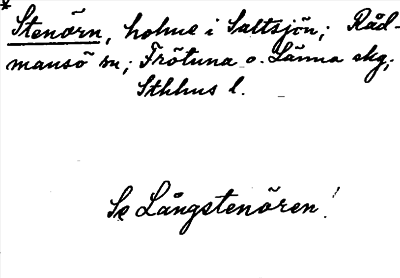 * Stenörn, holme i Saltsjön; Råd-
mansö sn; Frötuna o. Länna skg;
Sthlms l.
Se Långstenören!